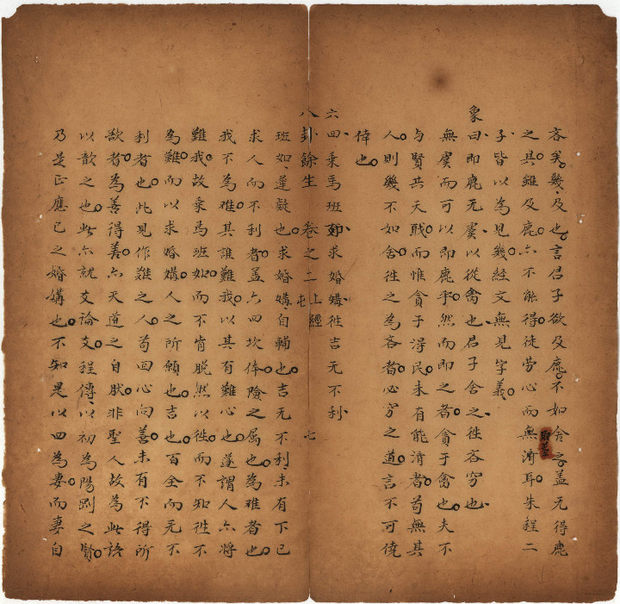 吝矣幾及也言君子欲及鹿不如舍之盖无得鹿
之具雖及鹿亦不能得徒劳心而無濟耳朱程二
子皆以為見幾經文無見字義
象曰即鹿无虞以從禽也君子舍之往吝穷也
無虞而可以即鹿乎然而即之者貪于禽也夫不
与賢共天職而惟貪于淂民未有能濟者苟無其
人則幾不如舍往之為吝者必穷之道言不可僥
倖也
六四乗馬班如求婚媾徃吉无不利
八卦餘生 卷之二上經 屯 七
班如遲疑也求婚媾自輔也吉无不利未有下已
求人而不利者盖六四坎倖險之属也為难者也
我不為难其誰難我以其有難心也遂謂人亦將
難我故乗馬班如而不肯脱然以徃而不知徃不
為難而以求婚媾人之所願也吉也百全而无不
利者也此見作難之人苟回心向善未有不得所
欲者為善得善亦天道之自肰非聖人故為此語
以歆之也此亦就爻論爻程傳以初為陽剛之賢
乃是正應已之婚媾也不知是以四為妻而妻自